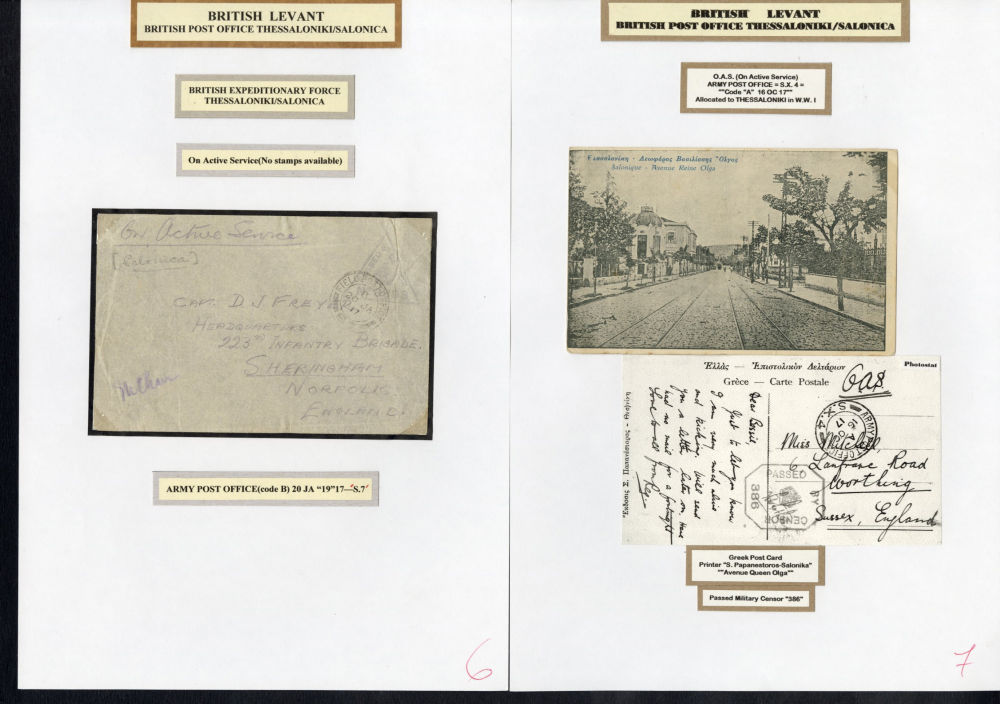 BRITISH LEVANT
BRITISH POST OFFICE THESSALONIKI/SALONICA
BRITISH EXPEDITIONARY FORCE
THESSALONIKI/SALONICA
On Active Service(No stamps available)
On Active Service
[Salonica]
CAPT. D J FREYE
HEADQUARTERS
223RD INFANTRY BRIGADE.
SHERINGHAM
NORFOLK
ENGLAND.
ARMY POST OFFICE(code B) 20 JA “19”17—S.7
6
BRITISH LEVANT
BRITISH POST OFFICE THESSALONIKI/SALONICA
O.A.S. (On Active Service)
ARMY POST OFFICE = S.X. 4 =
""Code "A" 16 OC 17""
Allocated to THESSALONIKI in W.W. I
Θεσσαλονίκη - Λεωφόρος Βασιλίσσης Ὄλγας
Salonique - Avenue Reine Olga
Photostat
Ἑλλὰς — Ἐπιστολικὸν Δελτάριον
Grèce — Carte Postale
OAS
ARMY POST OFFICE
S.X.4
Dear Bessie,
Just to let you know
I am very much alive
and kicking. Will send
you a letter later on. Have
had no mail for a fortnight
Love to all from Reg.
Miss Mitchell,
6, Lanfranc Road
Worthing
Sussex, England
PASSED BY
CENSOR
386
Greek Post Card
Printer "S. Papanestoros-Salonika"
""Avenue Queen Olga""
Passed Military Censor "386"
7